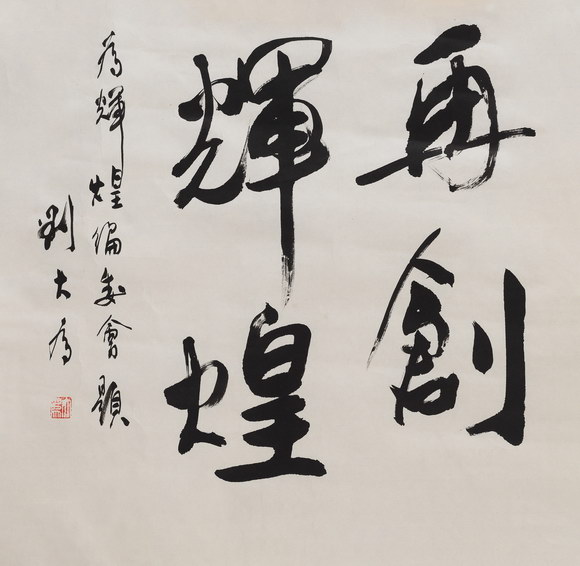 再創
輝煌
為輝煌編委會題
劉大為